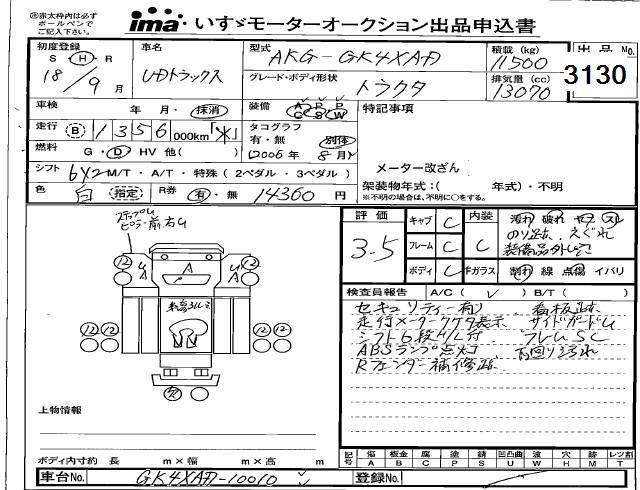 ㊟赤太枠内は必ず ボールペンで ご記入下さい。
ima いすゞモーターオークション出品申込書
初度登録 車名 型式 AKG-GK4XAD 積載(kg) 11500 出品No.
S・H・R 18/9月 UDトラックス グレード・ボディ形状 トラクタ 排気量(cc) 13070 3130
車検 年 月・抹消 装備 A/C P/S P/W 特記事項
走行 B 1356 000km「*」 タコグラフ 有・無 別体
燃料 G・D HV 他( ) (2006年 8月) メーター改ざん
シフト 6×2 M/T・A/T・特殊(2ペダル・3ペダル) 架装物年式:( 年式)・不明
※不明の場合は、年式不明に○をする。
色 白 指定 R券 有・無 14360円
評価 3-5 キャブ C 内装 C 汚れ 破れ ヤケ スレ
のり跡 えぐれ
フレーム C 装備品外しビス
ボディ C Fガラス 割れ 線 点傷 イバリ
検査員報告 A/C( ✓ ) B/T( )
セキュリティー有り 看板跡
走行メーターケタ表示 サイドガードU
シフト6段H/L付 フレームSC
ABSランプ点灯 下回りうろれ
Rフェンダー補修跡
ステップU
ピラー前右U
12 UA A UA 12
12 12 12 12
上物情報
ボディ内寸約 長 m×幅 m×高 m
記号 傷 A 板金 B 腐 C 塗 P 錆 S 凹凸曲 U 波 W 穴 H 跡 M レツ割 T
車台No. GK4XAD-10010 登録No.